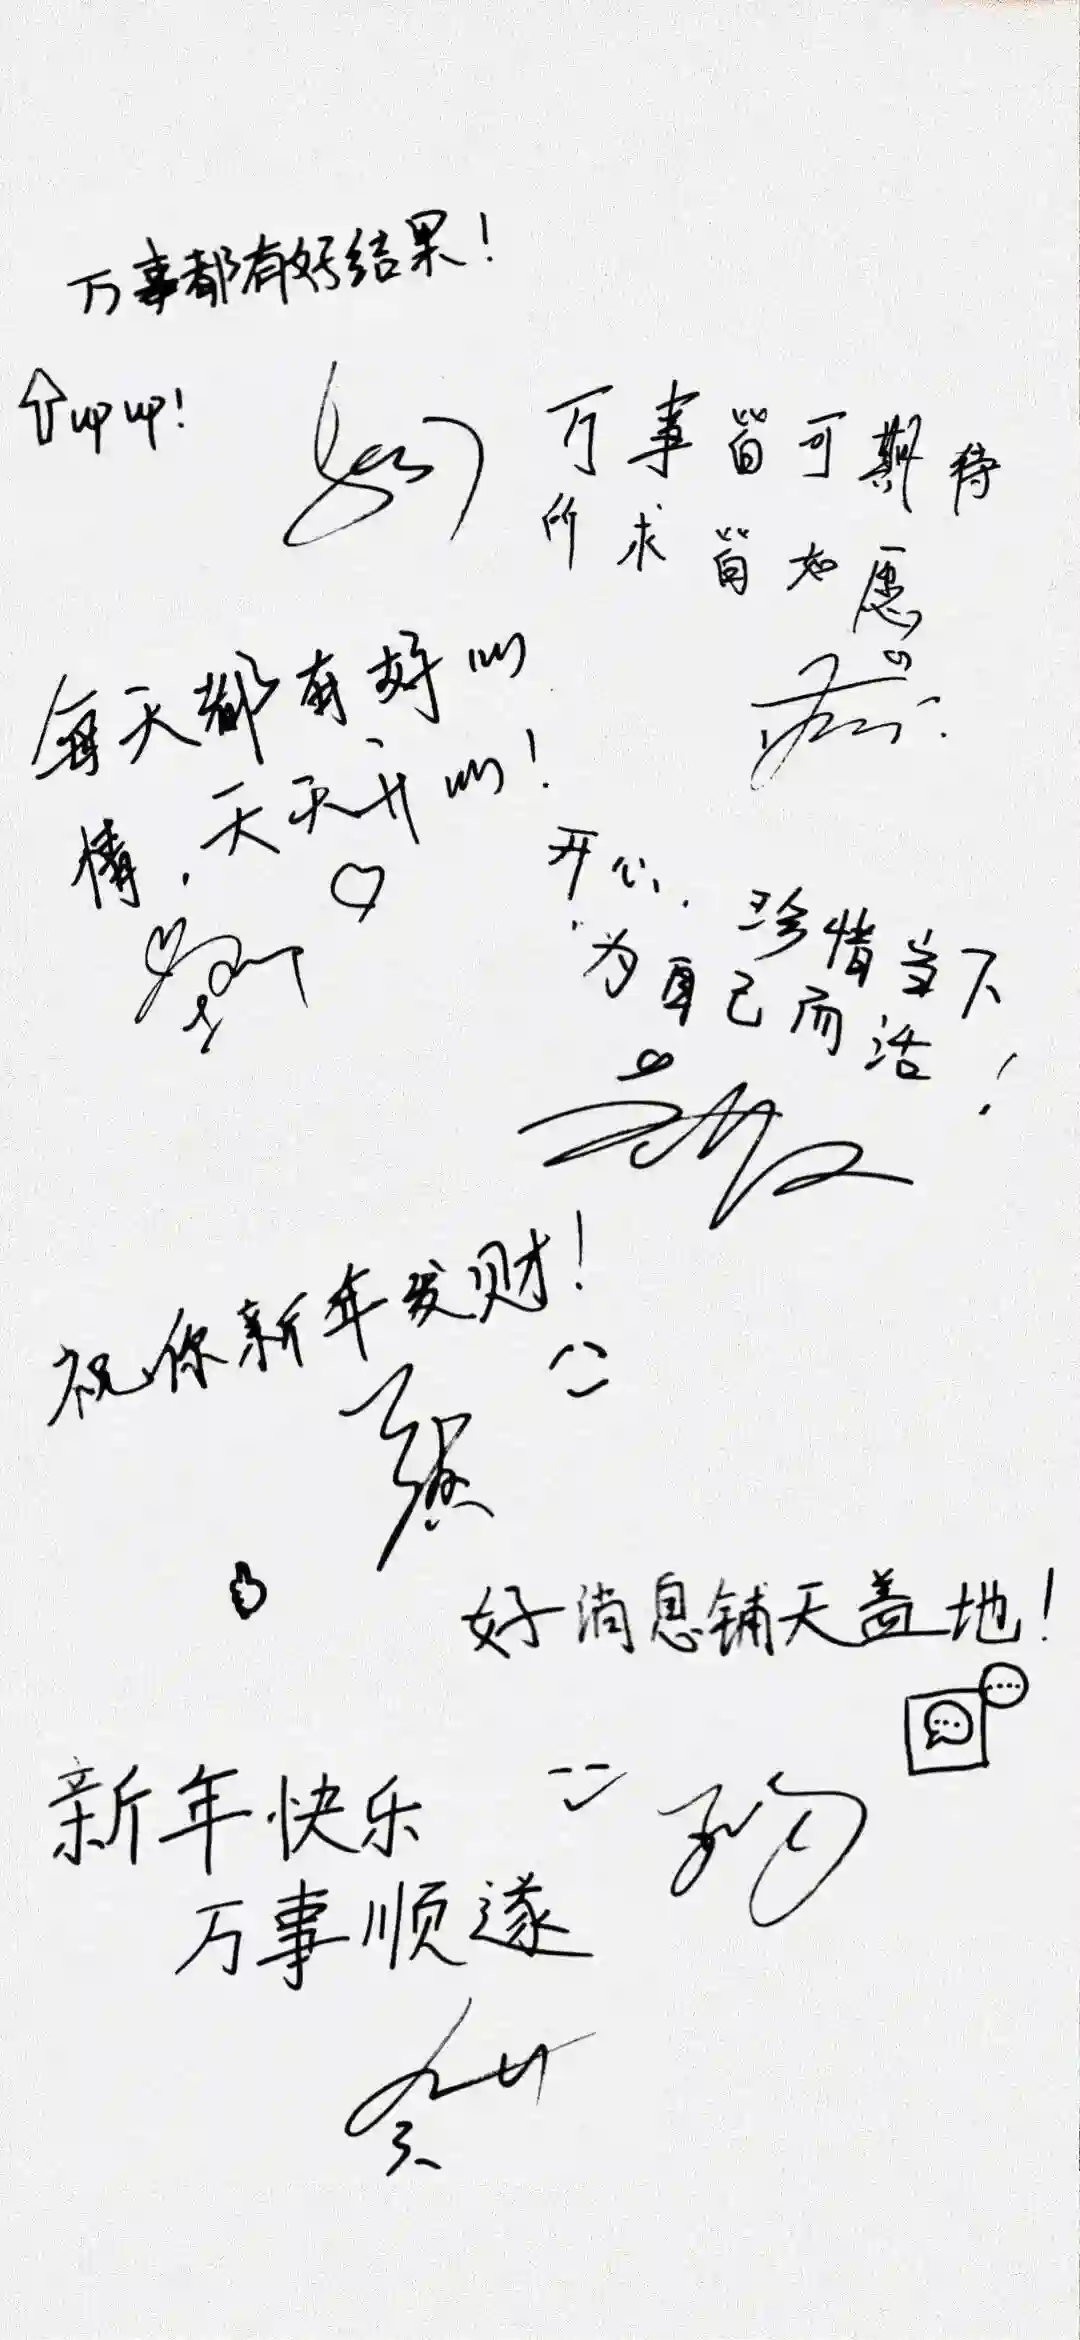 万事都有好结果!
up up!
万事皆可期待
所求皆如愿
每天都有好心
情,天天开心!
开心,珍惜当下
为自己而活!
祝你新年发财!
好消息铺天盖地!
新年快乐
万事顺遂